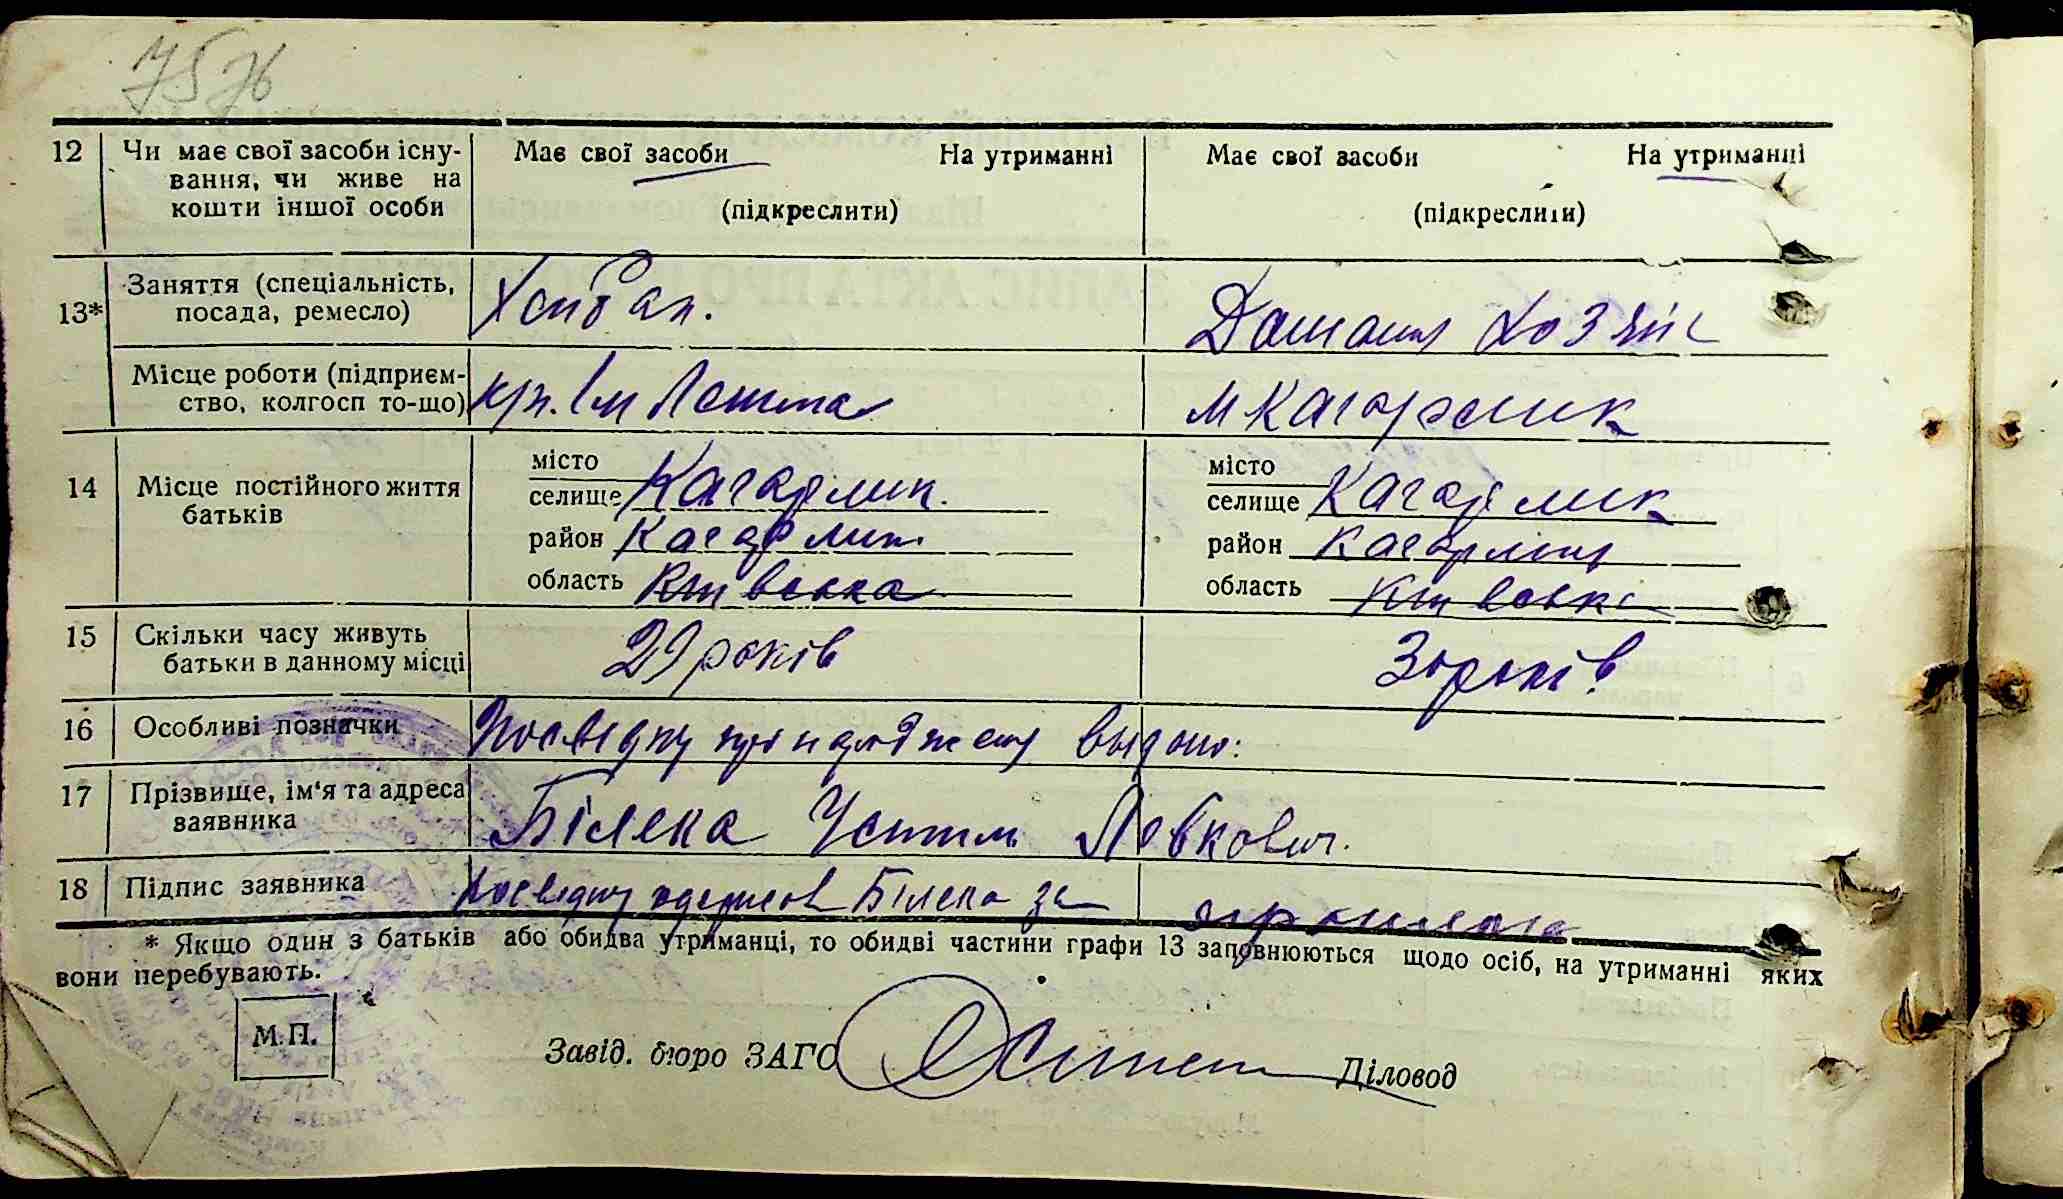 7576
12 Чи має свої засоби існу- Має свої засоби На утриманні Має свої засоби На утриманці
вання, чи живе на
кошти іншої особи (підкреслити) (підкреслити)
13* Заняття (спеціальність, посада, ремесло) Домашня Хозяйс
Місце роботи (підприєм- ім Леніна м Кагарлик
ство, колгосп то-що)
14 Місце постійного життя батьків місто місто
селище Кагарлик. селище Кагарлик
район Кагарлик район Кагарлик
область Київська область Київська
15 Скільки часу живуть 29 років років.
батьки в данному місці
16 Особливі позначки Посвідку про народження видано:
17 Прізвище, ім'я та адреса
заявника Білека Устим Левкович.
18 Підпис заявника Посвідку одержав Білека за
* Якщо один з батьків або обидва утриманці, то обидві частини графи 13 заповнюються щодо осіб, на утриманні яких
вони перебувають.
М.П.
Завід. бюро ЗАГС Діловод